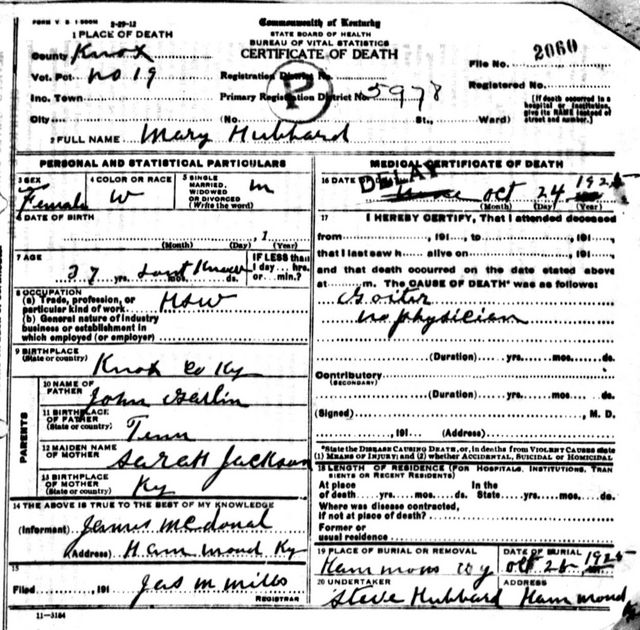 FORM V. S. 1 2-29-12
Commonwealth of Kentucky
STATE BOARD OF HEALTH
BUREAU OF VITAL STATISTICS
CERTIFICATE OF DEATH
1 PLACE OF DEATH
County Knox
Vot. Pct. No 19
Inc. Town
City (No. St., Ward)
File No. 2060
Registration District No.
Registered No.
P
Primary Registration District No. 5978
[If death occurred in a hospital or institution, give its NAME instead of street and number.]
2 FULL NAME Mary Hubbard
PERSONAL AND STATISTICAL PARTICULARS
3 SEX Female
4 COLOR OR RACE W
5 SINGLE MARRIED, WIDOWED OR DIVORCED (Write the word) m
6 DATE OF BIRTH
, 1
(Month) (Day) (Year)
7 AGE
27 yrs. dont Know mos. ds.
IF LESS than 1 day... hrs. or... min.?
8 OCCUPATION
(a) Trade, profession, or particular kind of work HSW
(b) General nature of industry business or establishment in which employed (or employer)
9 BIRTHPLACE
(State or country) Knox Co Ky
PARENTS
10 NAME OF FATHER John
11 BIRTHPLACE OF FATHER (State or country) Tenn
12 MAIDEN NAME OF MOTHER Sarah Jackson
13 BIRTHPLACE OF MOTHER (State or country) Ky
14 THE ABOVE IS TRUE TO THE BEST OF MY KNOWLEDGE
(Informant) James McDonal
(Address) Hammond Ky
15
Filed , 191 Jas M Mills
REGISTRAR
11-3184
MEDICAL CERTIFICATE OF DEATH
DELAY
16 DATE OF Oct 24 1925
(Month) (Day) (Year)
17 I HEREBY CERTIFY, That I attended deceased
from , 191 , to , 191 ,
that I last saw h alive on , 191 ,
and that death occurred on the date stated above
at m. The CAUSE OF DEATH* was as follows:
Goiter
no physician
(Duration) yrs. mos. ds.
Contributory
(SECONDARY)
(Duration) yrs. mos. ds.
(Signed) , M. D.
, 191 (Address)
*State the DISEASE CAUSING DEATH, or, in deaths from VIOLENT CAUSES state (1) MEANS OF INJURY; and (2) whether ACCIDENTAL, SUICIDAL or HOMICIDAL
18 LENGTH OF RESIDENCE (FOR HOSPITALS, INSTITUTIONS, TRANSIENTS OR RECENT RESIDENTS)
At place of death yrs. mos. ds. In the State yrs. mos. ds.
Where was disease contracted, if not at place of death?
Former or usual residence
19 PLACE OF BURIAL OR REMOVAL
Hammons
DATE OF BURIAL
Oct 25, 1925
20 UNDERTAKER
Steve Hubbard
ADDRESS
Hammond Ky